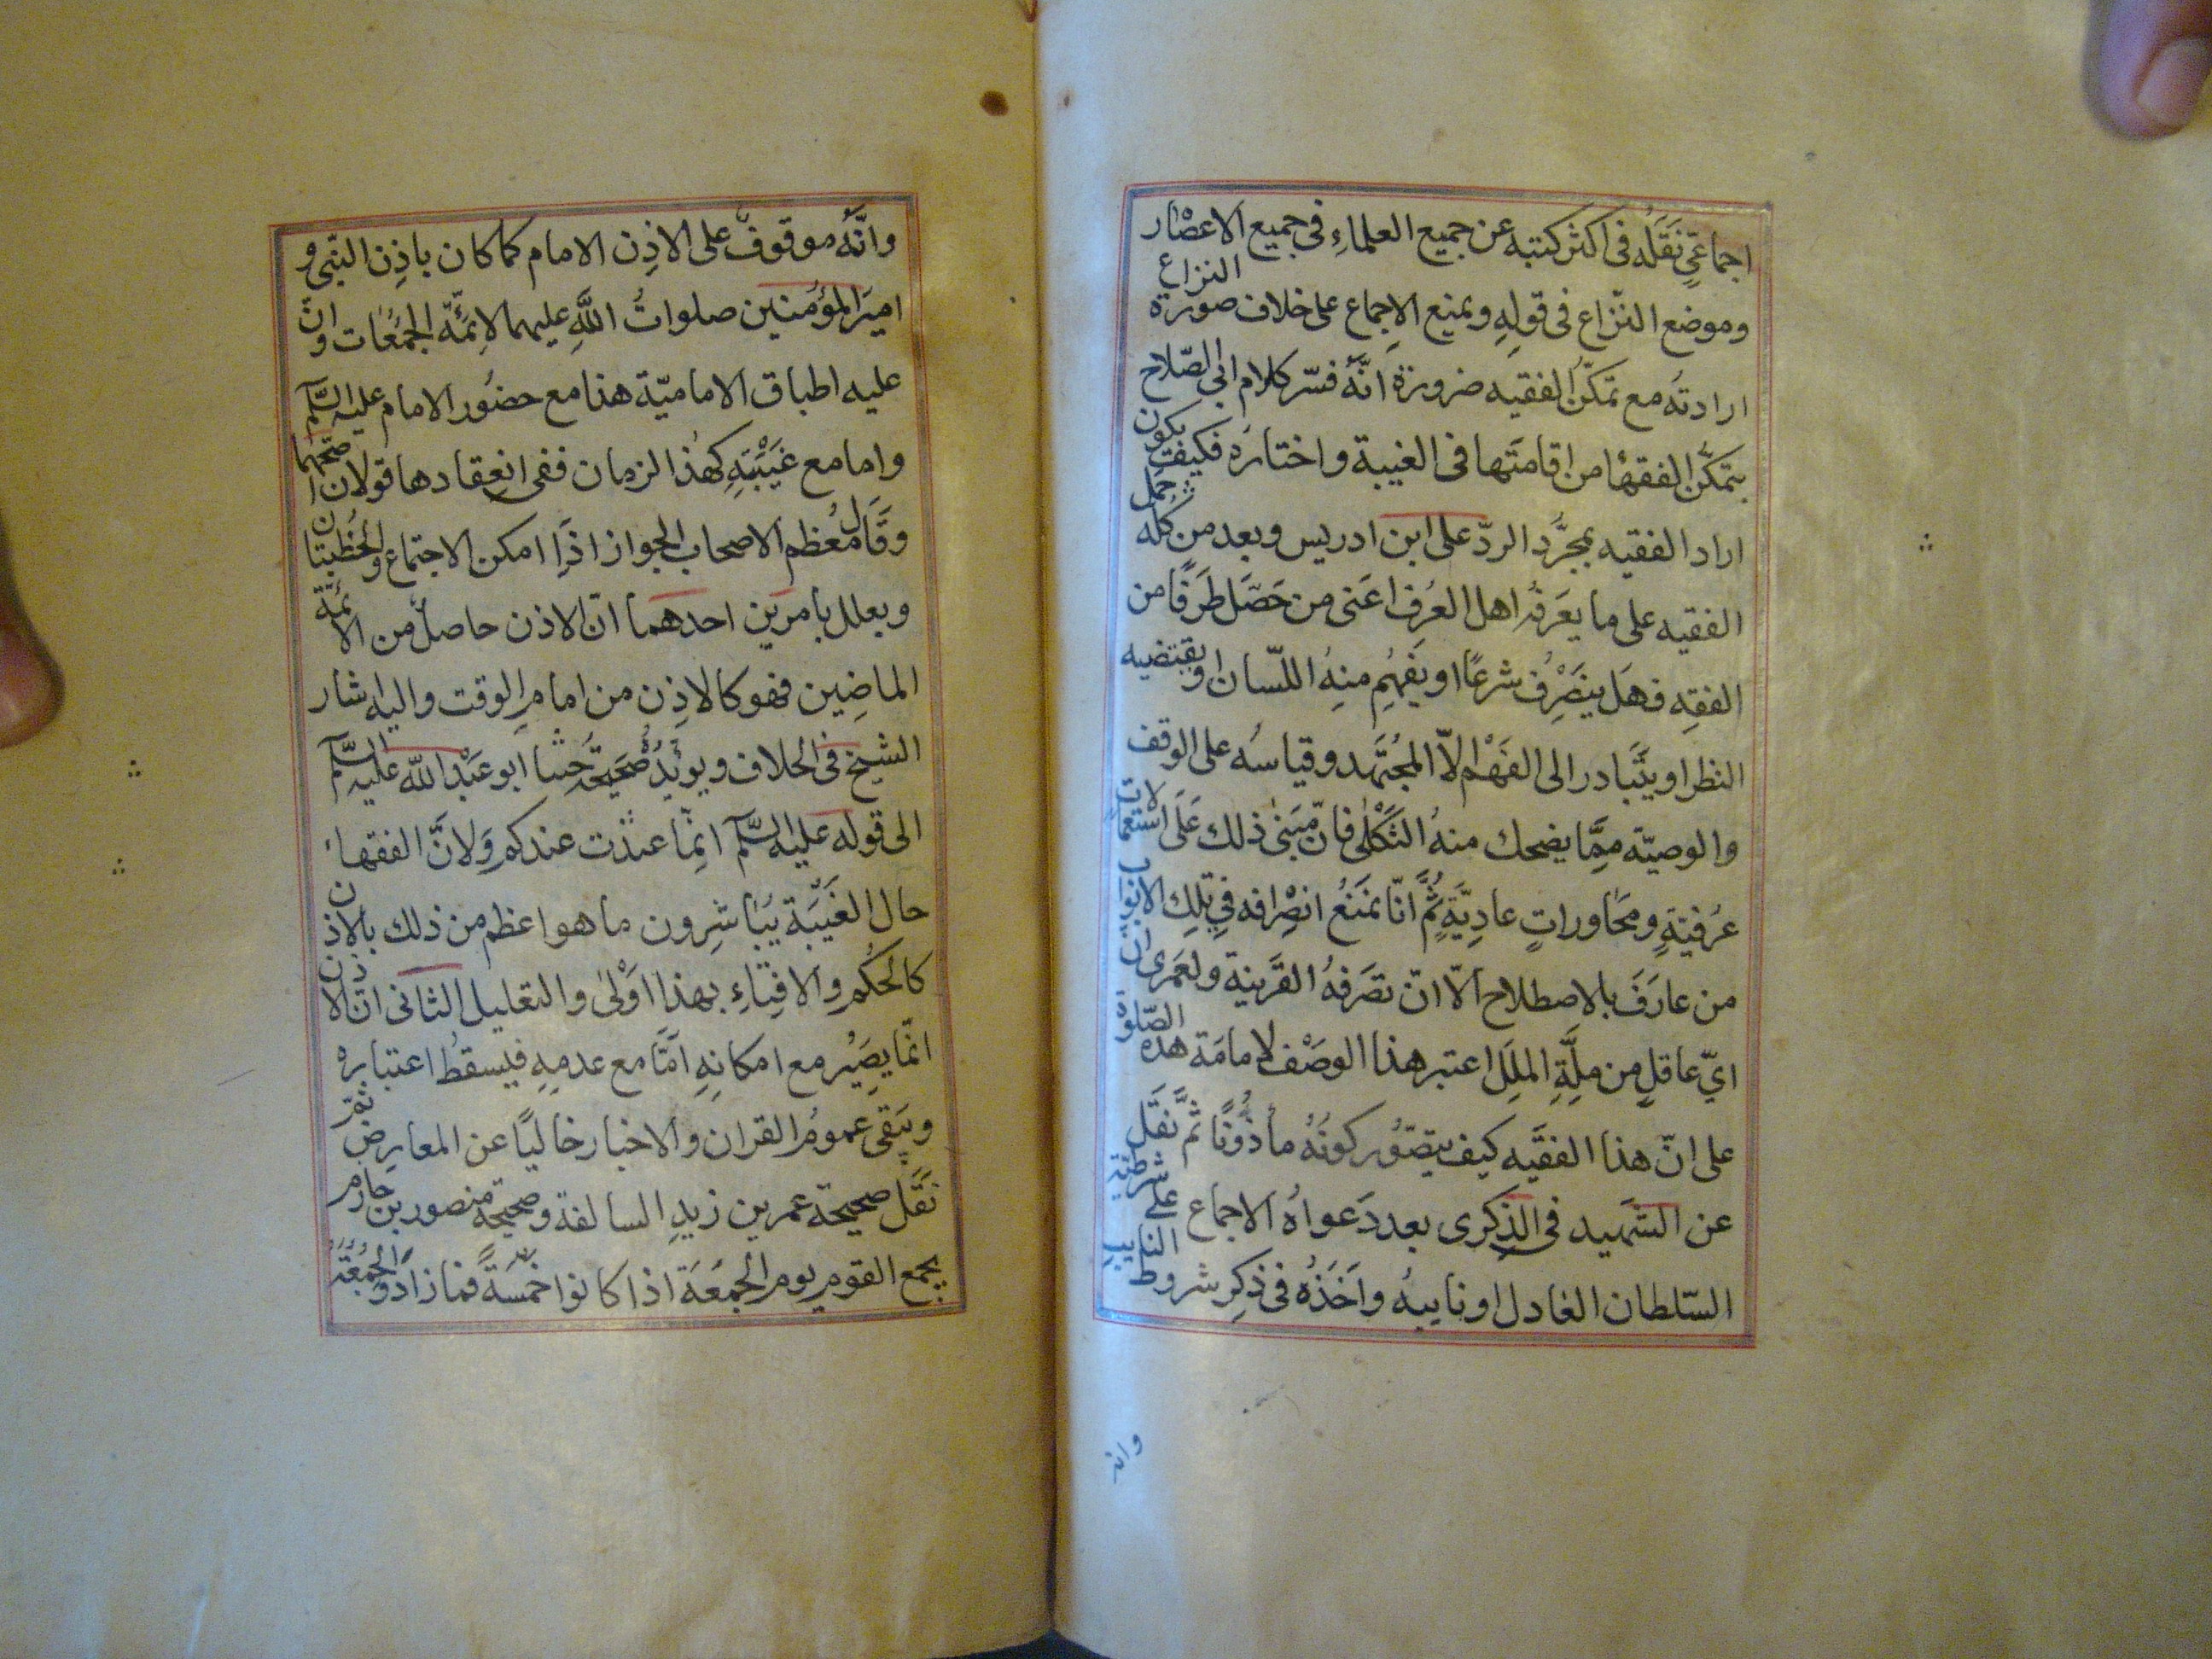 اجماعىٍّ نَقَلَه فى اكثر كتبه عن جميع العلماءِ فى جميع الاعصْار
وموضع النّزاع فى قولِهِ ويمنع الاِجماع على خلاف صورة النزاع
ارادتُه مع تمكّن الفقيه ضرورة انّهُ فسّر كلام ابى الصّلاح
بتمكّن الفقهاء من اقامتها فى الغيبة واختاره فكيف يكون
اراد الفقيه بمجرّد الردّ على ابن ادريس وبعد من كُلّه حَمل
الفقيه على ما يعَرفُه اهل العُرف اعَنى من حَصّل طَرفًا من
الفقِهِ فهل ينصَرِف شرعًا او يفهم منِهُ اللّسان او يقتضيه
النظر او يتَبادر الى الفَهْم الّا المجُتَهد وقياسُه على الوقف
والوصيّة مِمّا يضحك منهُ الثّكْلى فانّ مَبَنى ذلك عَلَى استعمالات
عُرفيّةٍ ومحَاوراتٍ عادِيَّةٍ ثُمَّ انّا نمَنَعُ انصْرافه فى تِلك الابواب
من عارَفَ بالاصطلاح الّا انّ تصَرفهُ القَرينة ولعَمرى ان
اىّ عاقلٍ من ملّةِ المِلَل اعتبر هذا الوصَف لامامَة هذه الصّلوة
على انّ هذا الفقيه كيف يتصّور كونُهُ مأذُونًا ثُمَّ نَقَل
عن الشهيد فى الذكرى بعد دَعواهُ الاجماع على شرطيّة
السّلطان العادل او نايبهُ واَخَذهُ فى ذكِر شروط النايب
وانه
وانّهُ موقوفٌ على الاذِن الامام كما كان باذِن النّبى و
اميرَ المؤمنين صلواتُ اللّهِ عليهما لائِمّة الجمُعَات وانّ
عليه اطباق الاماميّة هذا مع حضُور الامام عليه السَّلم
واما مع غيَبَتِهِ كهذا الزمان ففى انعقادها قولان اصحّهما
وقَال مُعظم الاصحاب الجواز اذَا امكن الاجتماع والخُطبتان
ويعلل بامرين احدهما انّ الاذن حاصلٌ من الائمّة
الماضِين فهو كالاذِن من امام الوقت واليه اشار
الشيخ فى الخلاف ويويّدُ صَحيحَة حُثنا ابو عَبْد اللّه عليه السَّلم
الى قوله عليه السَّلم انِمّا عنذت عندكم وَلانّ الفقهاء
حال الغَيّبَة يُبَاشِرون ما هو اعظم من ذلك بالاذن
كالحكُم والافتاءِ بهذا اَوْلى والتعليل الثانى انّ الاذن
انّما يصِيُر مع امكانِهِ امّا مع عدمِهِ فيسقُط اعتباره
ويبَقى عموم القران والاخبار خاليًا عن المعارض ثمّ
نَقَل صحيحَة عمر بن زيدِ السالفة وصحيحَة منصور بن حازم
يجمع القوم يوم الجمعَة اذا كانوا خمسَةً فما زادوُ الجُمُعَّة